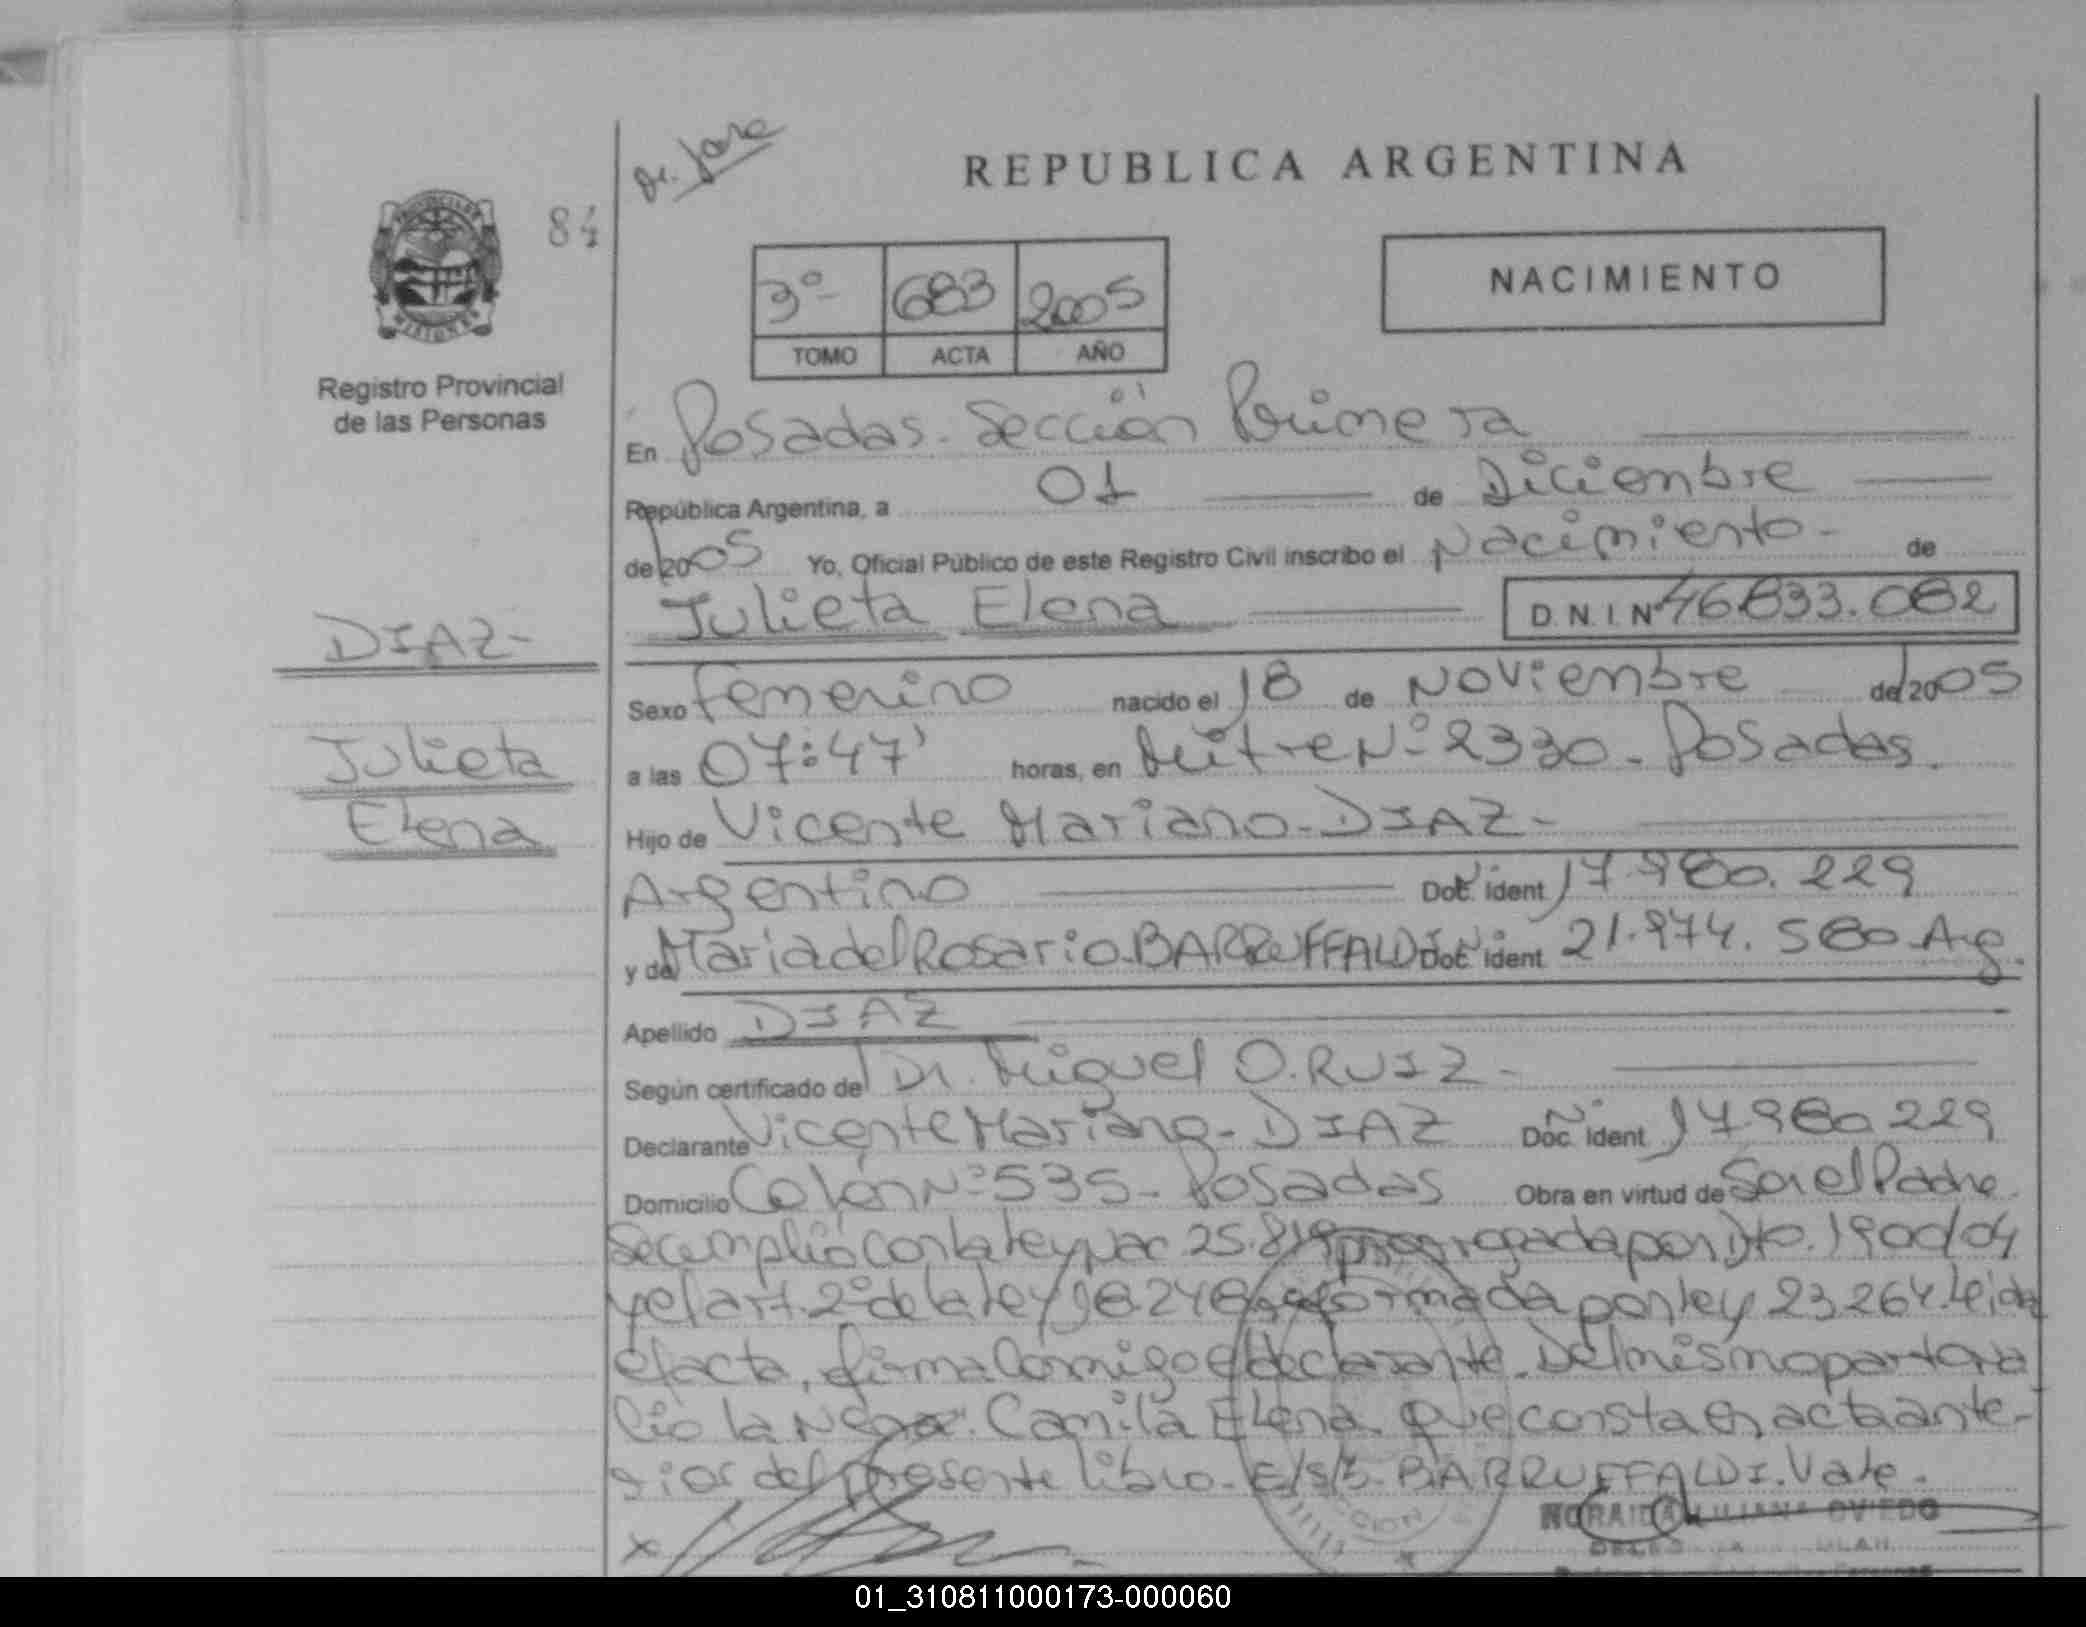 de. Jara
REPUBLICA ARGENTINA
84
3º 683 2005
TOMO ACTA AÑO
NACIMIENTO
PROVINCIA DE
MISIONES
Registro Provincial
de las Personas
En Posadas. Sección Primera
República Argentina, a 01 de Diciembre
de 2005 Yo, Oficial Público de este Registro Civil inscribo el Nacimiento- de
Julieta Elena D.N.I. Nº 46.833.082
DIAZ-
Julieta
Elena
Sexo Femenino nacido el 18 de Noviembre de 2005
a las 07:47' horas, en Mitre Nº 2330 - Posadas.
Hijo de Vicente Mariano - DIAZ -
Argentino Doc. ident 17.980.229
y de Maria del Rosario. BARRUFFALDI Doc. ident 21.974.580 Arg.
Apellido DIAZ
Según certificado de Dr. Miguel O. RUIZ -
Declarante Vicente Mariano - DIAZ Doc. Nº ident 17.980.229
Domicilio Colón Nº 535 - Posadas Obra en virtud de Ser el Padre.
Se cumplió con la ley nac 25.819 prorrogada por Dto. 1900/04
y el art. 2º de la ley 18.248 reformada por ley 23.264. Leida
el acta, firma Conmigo el declarante. Del mismo parto na
ció la Nena. Camila Elena que consta en acta ante-
rior del presente libro. E/S/B. BARRUFFALDI. Vale.
x
NORAIDA LILIANA OVIEDO
01_310811000173-000060